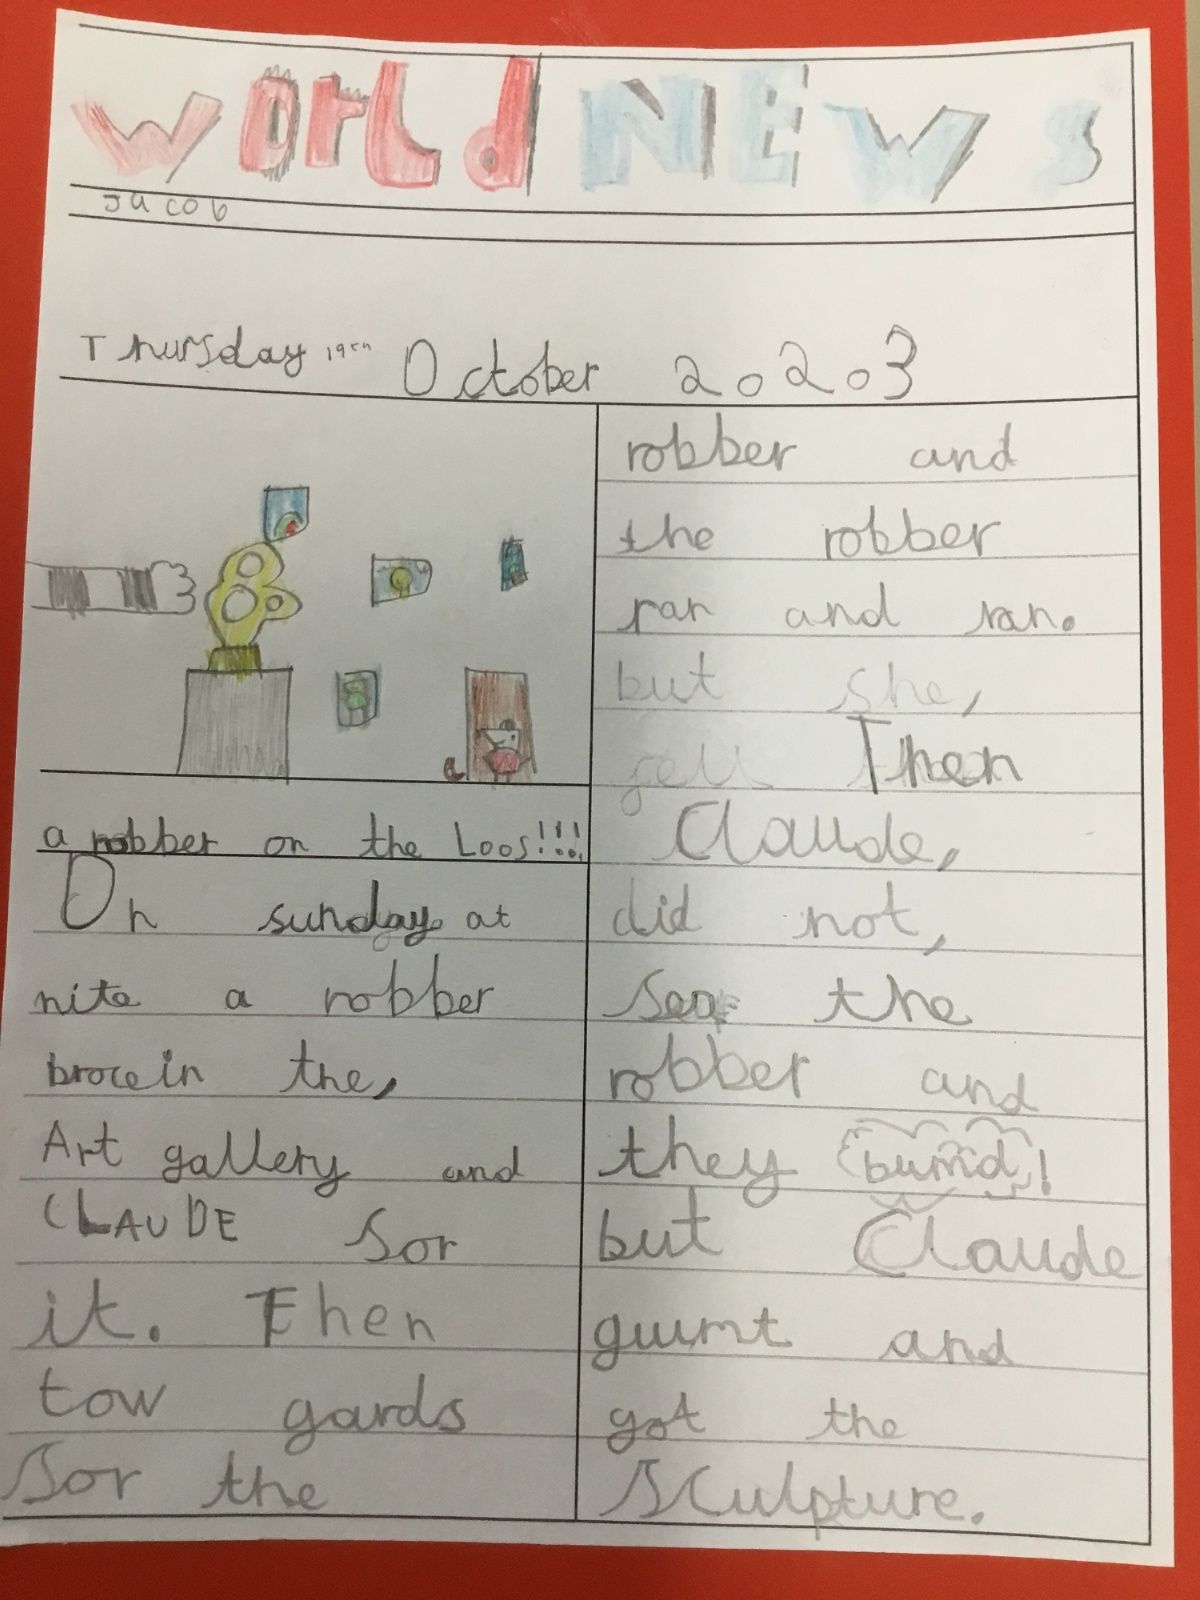 WOrLd NEWS
Jacob
Thursday 19th October 2023
a robber on the Loos!!!
On sunday at
nite a robber
broce in the,
Art gallery and
CLAUDE Sor
it. Then
tow gards
Sor the
robber and
the robber
ran and ran.
but she,
Then
Claude,
did not,
See the
robber and
they bumd!
but Claude
gumt and
got the
Sculpture.